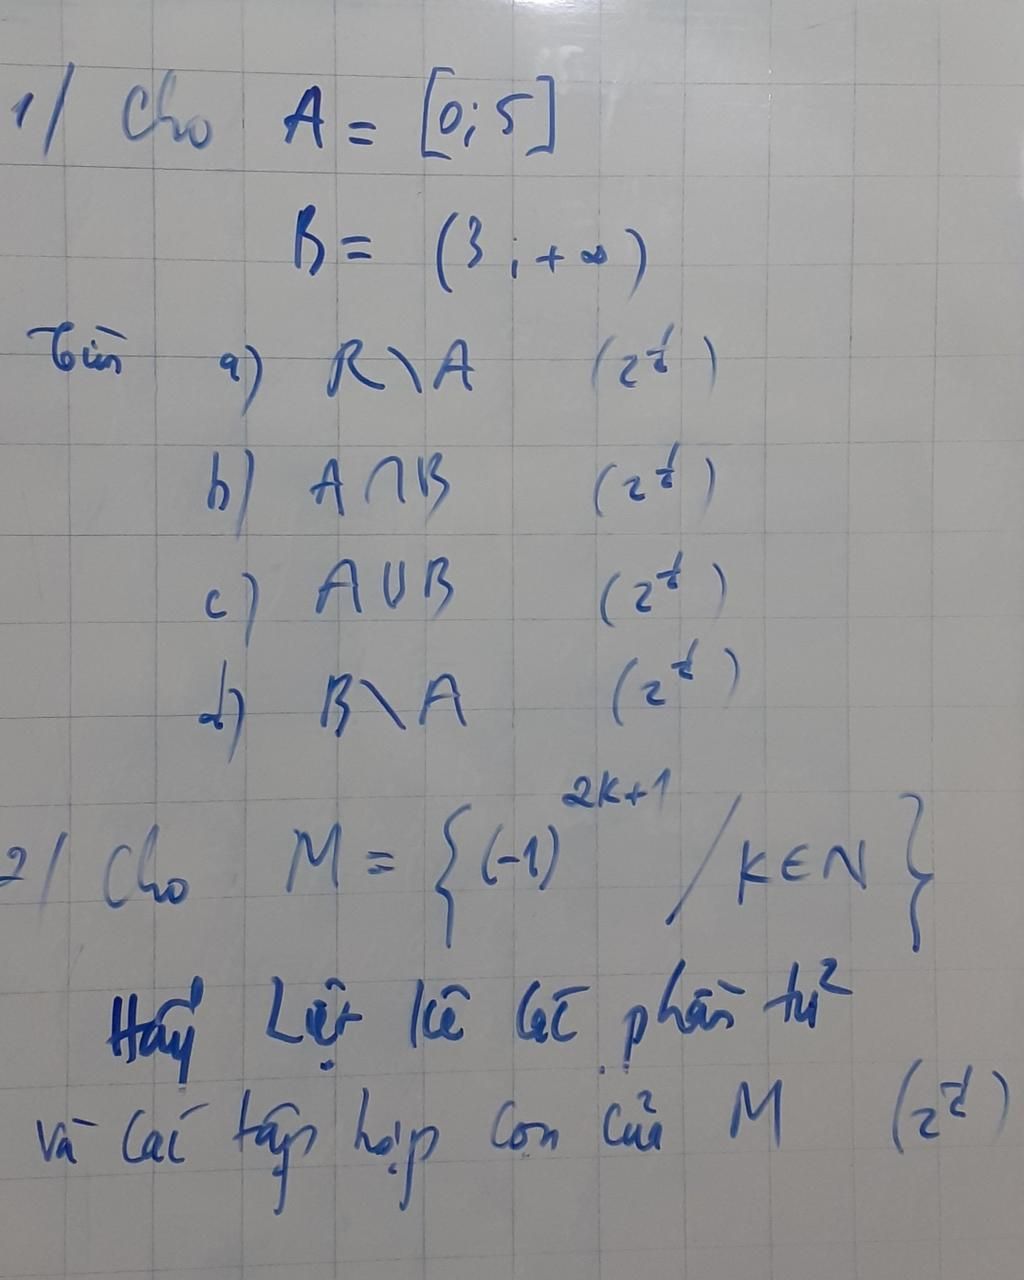 1/ Cho A = [0; 5]
B = (3; +∞)
Tìm a) R \ A (2đ)
b) A ∩ B (2đ)
c) A ∪ B (2đ)
d) B \ A (2đ)
2/ Cho M = {(-1)^{2K+1} / K ∈ N}
Hãy Liệt kê các phần tử
và các tập hợp con của M (2đ)